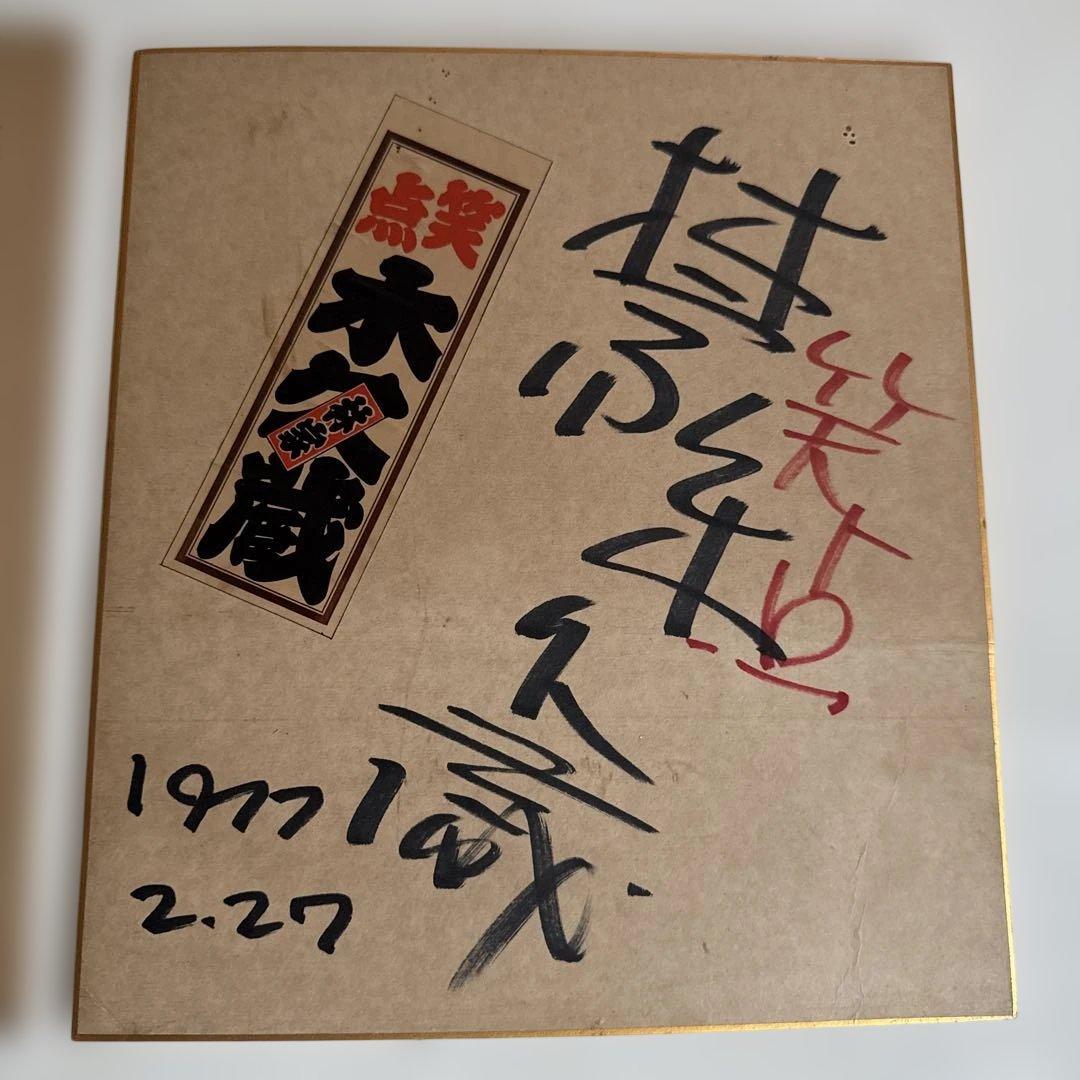 笑点
林家
木久蔵
笑点
木久蔵
林家
1977
2.27